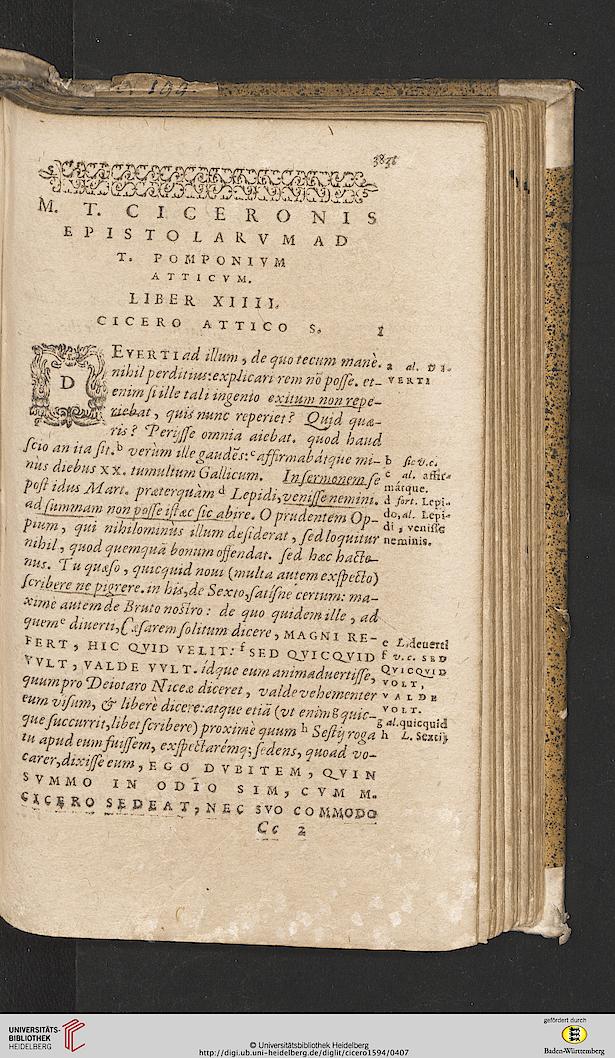 M. T. CICERONIS
EPISTOLARVM AD
T. POMPONIVM
ATTICVM.
LIBER XIIII.
CICERO ATTICO S. 1
DEVERTI ad illum, de quo tecum manè.
nihil perditius: explicari rem nō posse. et-
enim si ille tali ingenio exitum non repe-
riebat, quis nunc reperiet? Quid quæ-
ris? Perijsse omnia aiebat. quod haud
scio an ita sit. b verùm ille gaudēs: c affirmabátque mi-
nus diebus XX. tumultum Gallicum. In sermonem se
post idus Mart. præterquàm d Lepidi, venisse nemini.
ad summam non posse istæc sic abire. O prudentem Op-
pium, qui nihilominùs illum desiderat, sed loquitur
nihil, quod quemquā bonum offendat. sed hæc hacte-
nus. Tu quæso, quicquid noui (multa autem exspecto)
scribere ne pigrere. in his, de Sexto, satisne certum: ma-
ximè autem de Bruto nostro: de quo quidem ille, ad
quem e diuerti, Cæsarem solitum dicere, MAGNI RE-
FERT, HIC QVID VELIT: f SED QVICQVID
VVLT, VALDE VVLT. ídque eum animaduertisse,
quum pro Deiotaro Niceæ diceret, valde vehementer
eum visum, & liberè dicere: atque etiā (vt enim g quic-
que succurrit, libet scribere) proximè quum h Sestij roga
tu apud eum fuissem, exspectarémq; sedens, quoad vo-
carer, dixisse eum, EGO DVBITEM, QVIN
SVMMO IN ODIO SIM, CVM M.
CICERO SEDEAT, NEC SVO COMMODO
Cc 2
a al. DI-
VERTI
b sic v.c.
c al. affir-
mátque.
d fort. Lepi-
do, al. Lepi-
di, venisse
neminis.
e L. deuerti
f v.c. SED
QVICQVID
VOLT,
VALDE
VOLT.
g al. quicquid
h L. Sextij
UNIVERSITÄTS-
BIBLIOTHEK
HEIDELBERG
© Universitätsbibliothek Heidelberg
http://digi.ub.uni-heidelberg.de/diglit/cicero1594/0407
gefördert durch
Baden-Württemberg